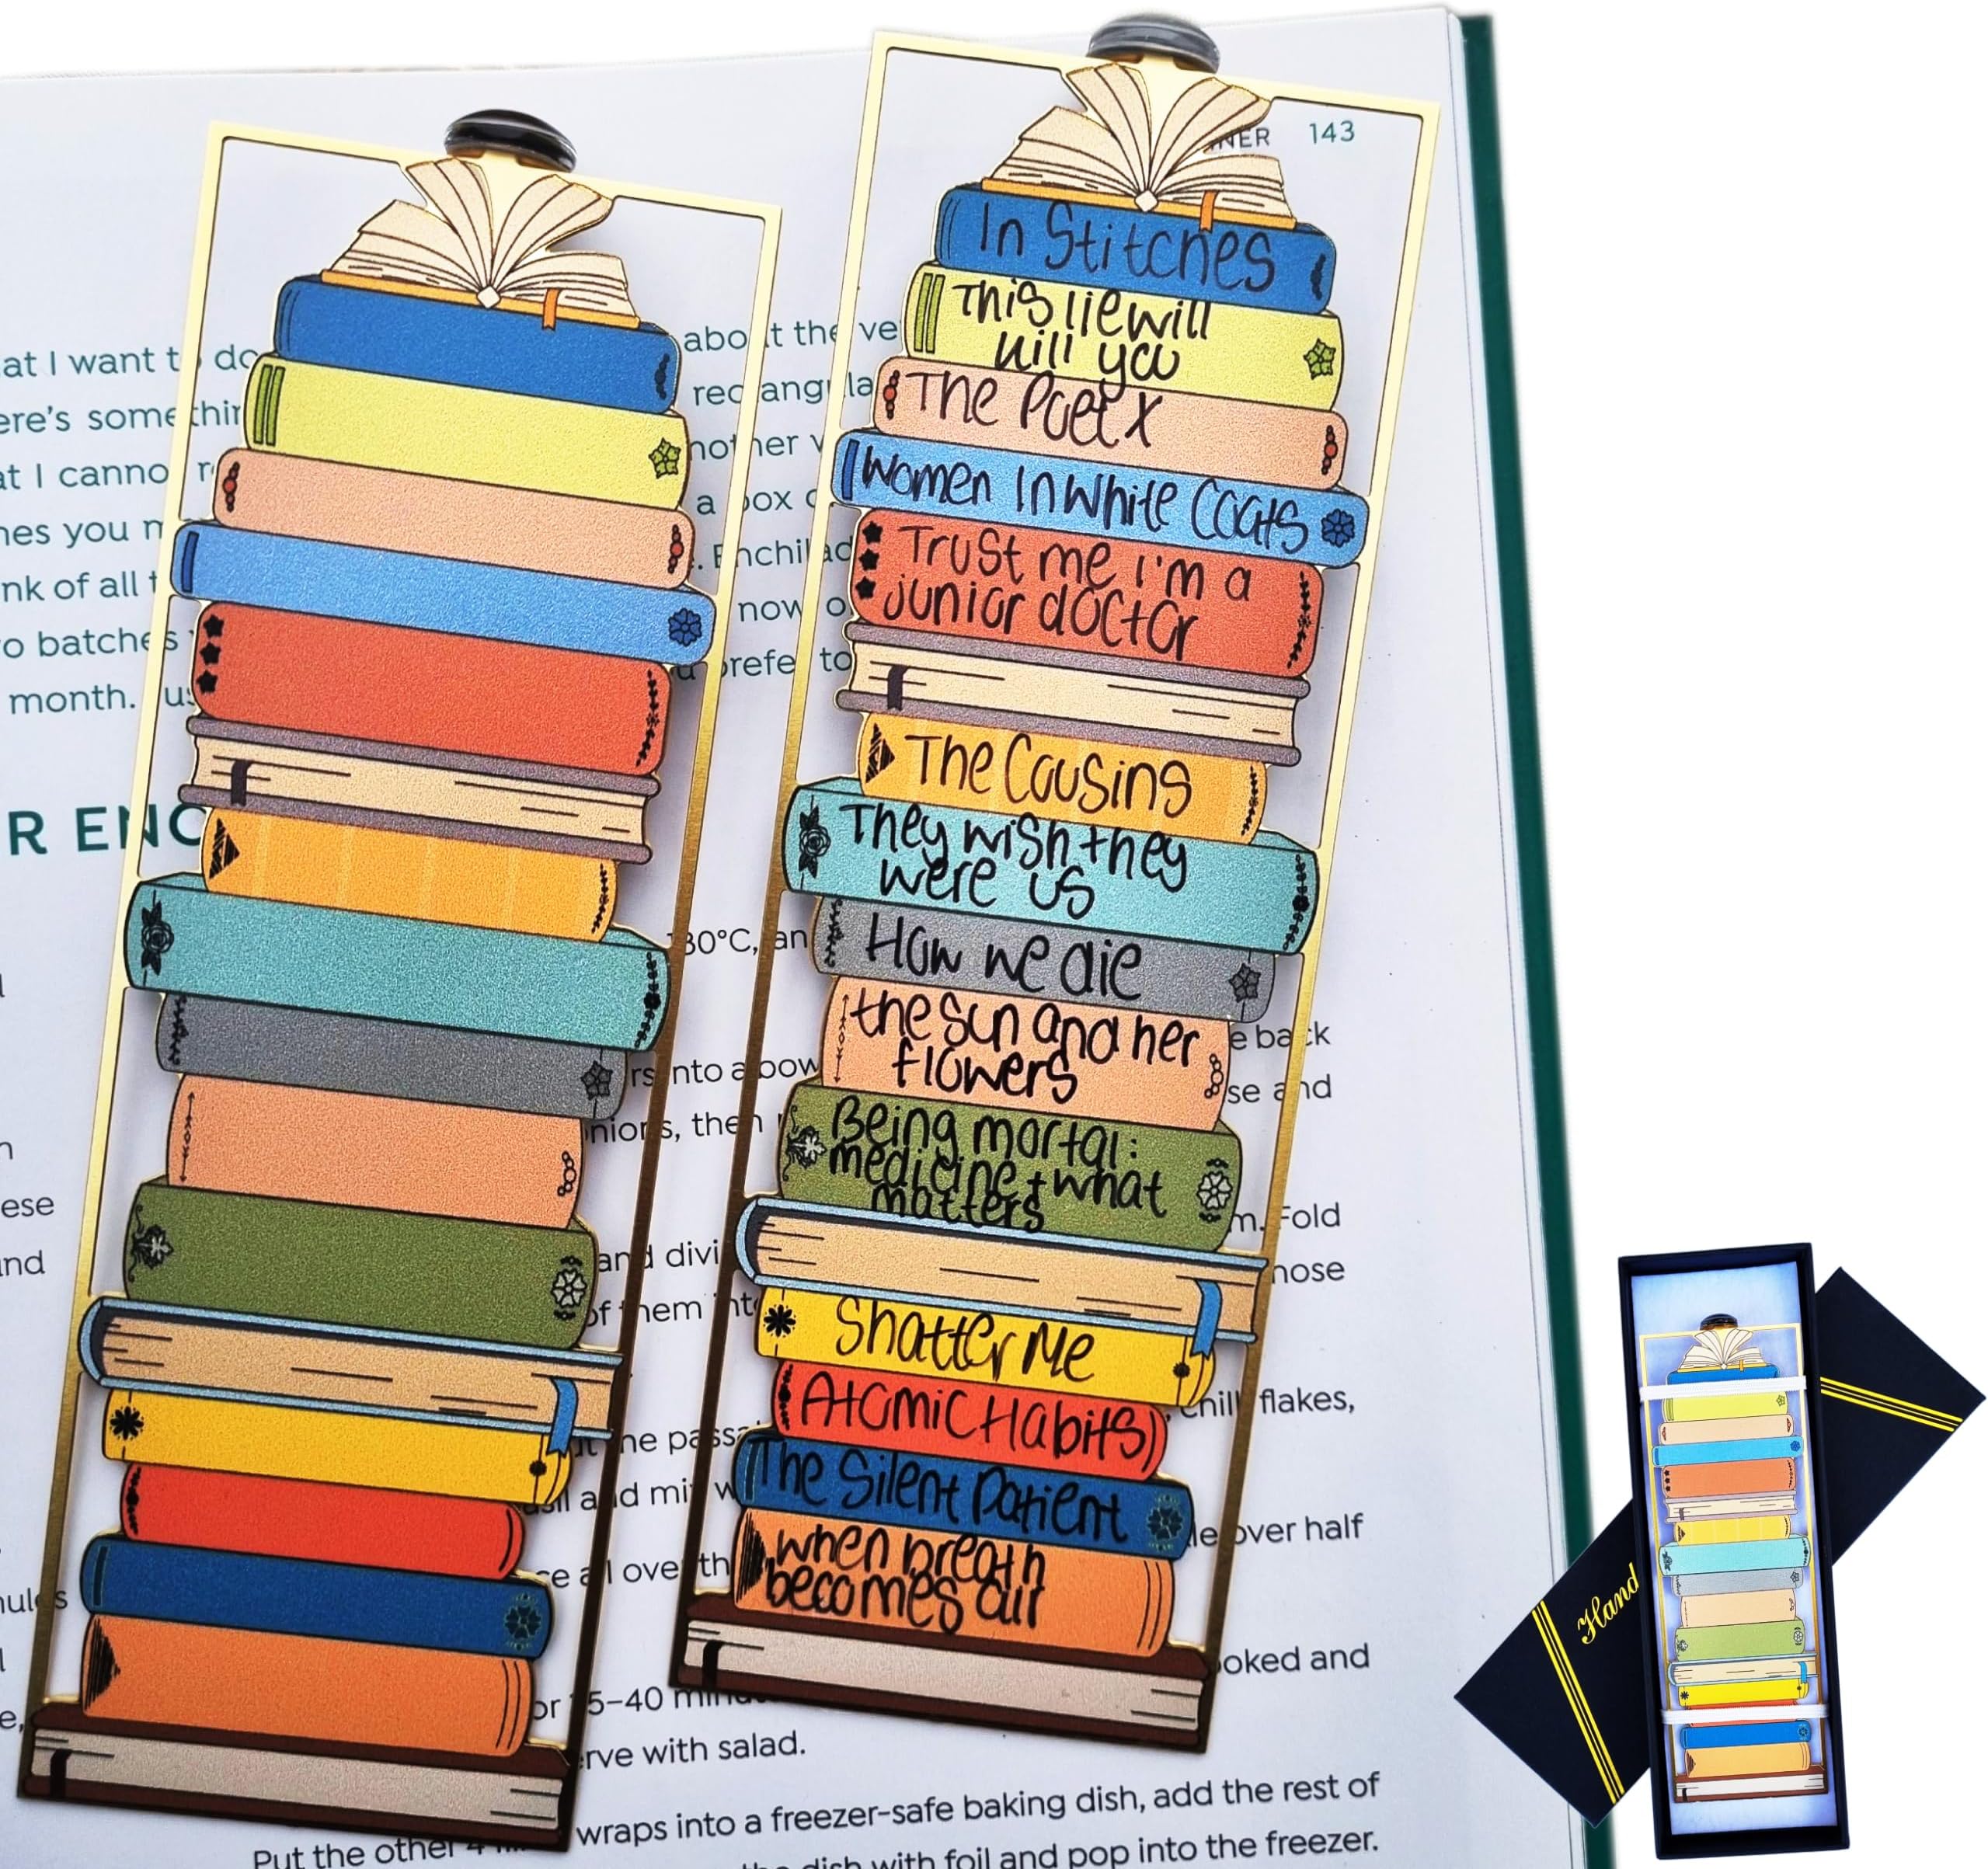 143
at I want to do about the ve
ere's somethin rectangula
at I canno nother
nes you m a box
nk of all Enchilad
o batches now o
month. us prefe to
R ENC
180°C, an
e back
rs into a bow se and
nions, then
ese
and divi m. Fold
nd of them int hose
chilli flakes,
ut the passa
and mi w
le over half
ce all over th
oked and
or 35–40 minu
e, rve with salad.
Put the other 4 wraps into a freezer-safe baking dish, add the rest of
dish with foil and pop into the freezer.
In Stitches
This lie will
kill you
The Poet X
Women In White Coats
Trust me I'm a
junior doctor
The Cousins
They wish they
were us
How we die
the sun and her
flowers
Being mortal:
medicine + what
matters
Shatter Me
Atomic Habits
The Silent Patient
when breath
becomes air
Hand